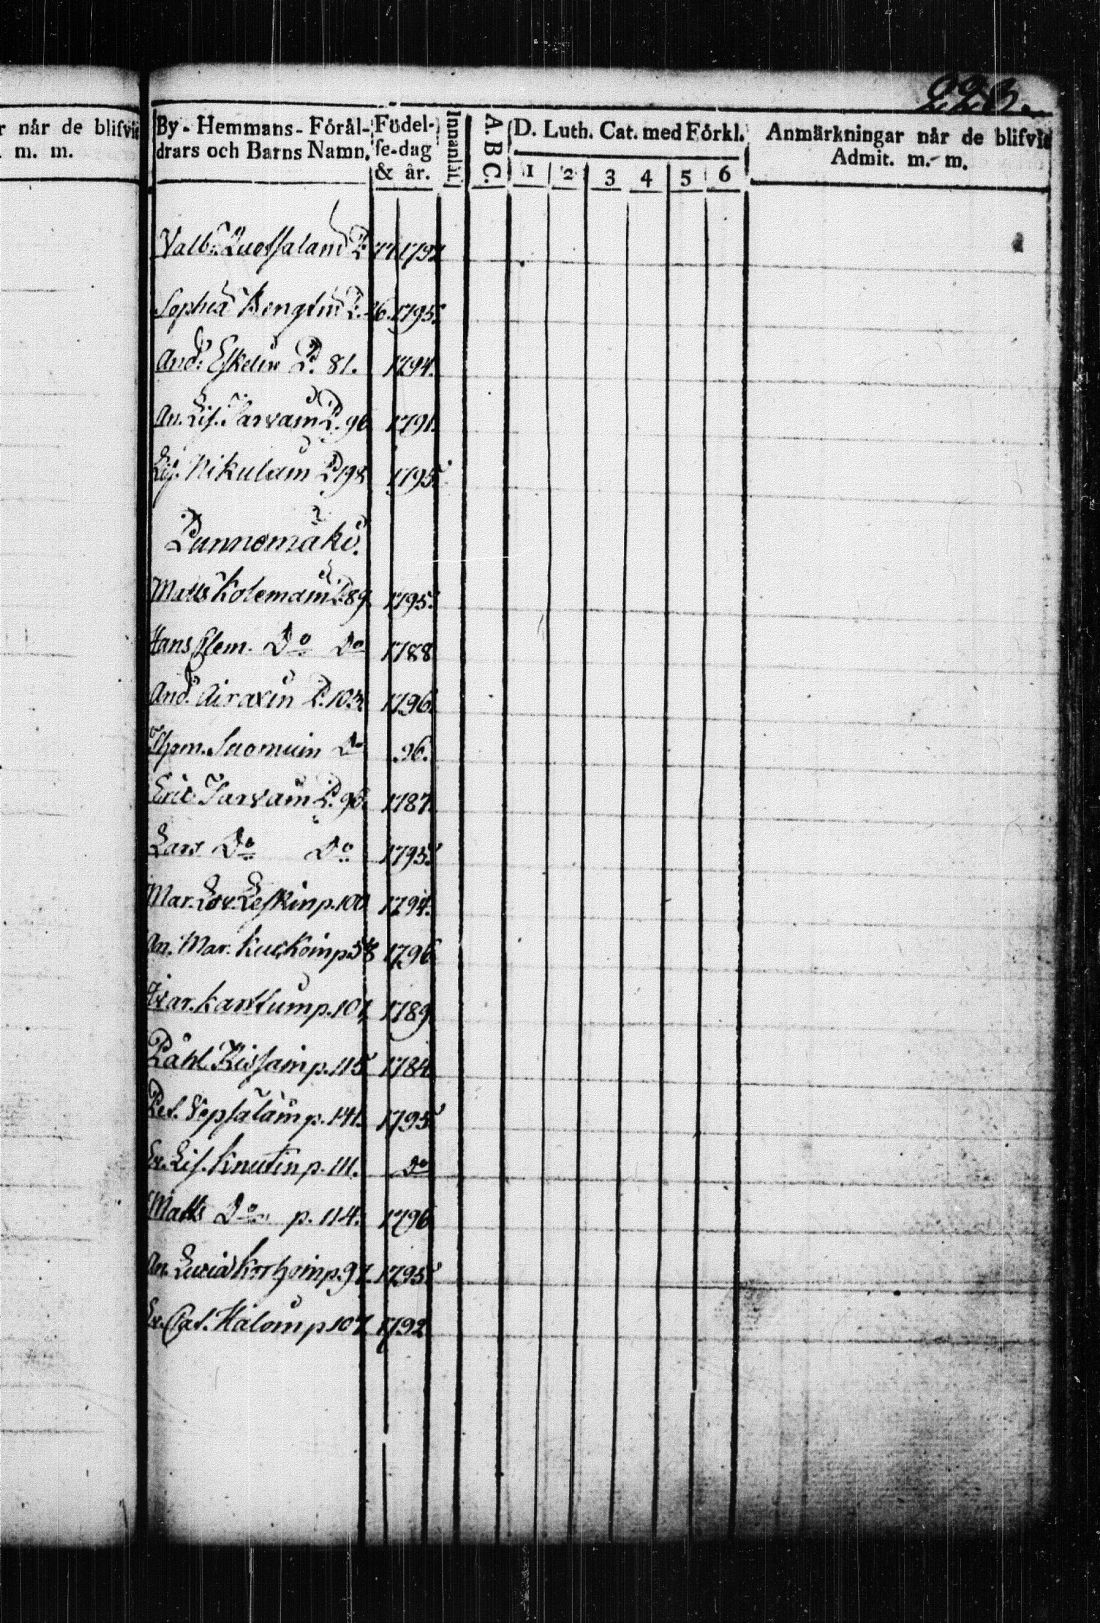 r når de blifvit
m. m.
By- Hemmans- Föräl-
drars och Barns Namn.
Födel-
se-dag
& år.
Innantil.
A. B C.
D. Luth. Cat. med Förkl.
1 2 3 4 5 6
Anmärkningar når de blifvit
Admit. m. m.
Valb: P. 77 1792
Sophia Bengtin P. 26. 1795.
And: Eskelin P. 81. 1794.
An. Lis. Sarvain P. 96 1791.
Lis. Nikulain P. 98 1795
Punnomäki.
Matts Kolemain P. 89 1795.
Hans Clem. Do Do 1788
And. Airaxin P. 103 1796
Thom. Suomuin Do 96.
Eric Sarvain P. 96. 1787.
Lars Do Do 1795.
Mar. Lov. Leskin p. 100 1794.
An. Mar. p. 58 1796
p. 107 1789
Påhl Kissain p. 115 1784
Pet. Vepsäläin p. 141. 1795
Lis. Knutin p. 111. Do
Matts Do p. 114. 1796
An. Lucia Korhoin p. 97. 1795
Cat. p. 107 1792